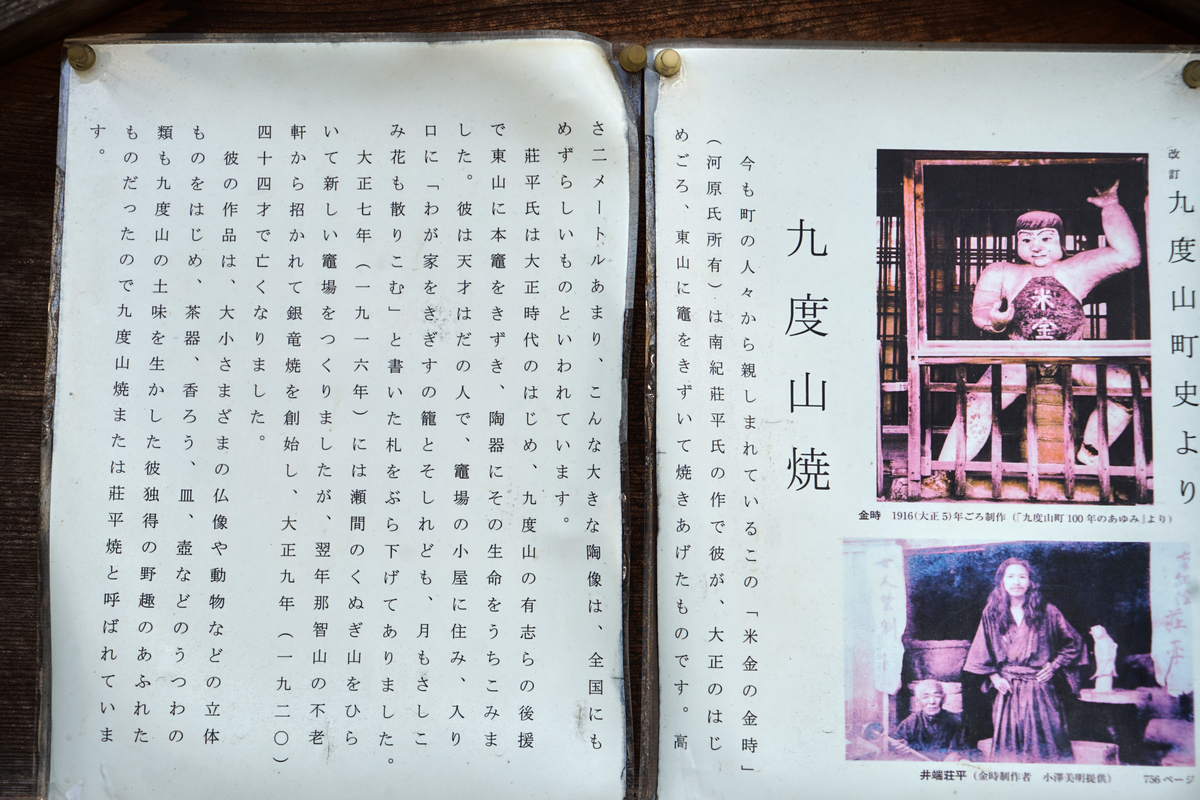 改訂 九度山町史より
米金
金時 1916(大正5)年ごろ制作（『九度山町100年のあゆみ』より）
荘平
女人禁制
井端荘平（金時制作者 小澤美明提供） 756ページ
九度山焼
今も町の人々から親しまれているこの「米金の金時」
（河原氏所有）は南紀荘平氏の作で彼が、大正のはじ
めごろ、東山に竈をきずいて焼きあげたものです。高
さ二メートルあまり、こんな大きな陶像は、全国にも
めずらしいものといわれています。
荘平氏は大正時代のはじめ、九度山の有志らの後援
で東山に本竈をきずき、陶器にその生命をうちこみま
した。彼は天才はだの人で、竈場の小屋に住み、入り
口に「わが家をきぎすの籠とそしれども、月もさしこ
み花も散りこむ」と書いた札をぶら下げてありました。
大正七年（一九一六年）には瀬間のくぬぎ山をひら
いて新しい竈場をつくりましたが、翌年那智山の不老
軒から招かれて銀竜焼を創始し、大正九年（一九二〇）
四十四才で亡くなりました。
彼の作品は、大小さまざまの仏像や動物などの立体
ものをはじめ、茶器、香ろう、皿、壺などのうつわの
類も九度山の土味を生かした彼独得の野趣のあふれた
ものだったので九度山焼または荘平焼と呼ばれていま
す。